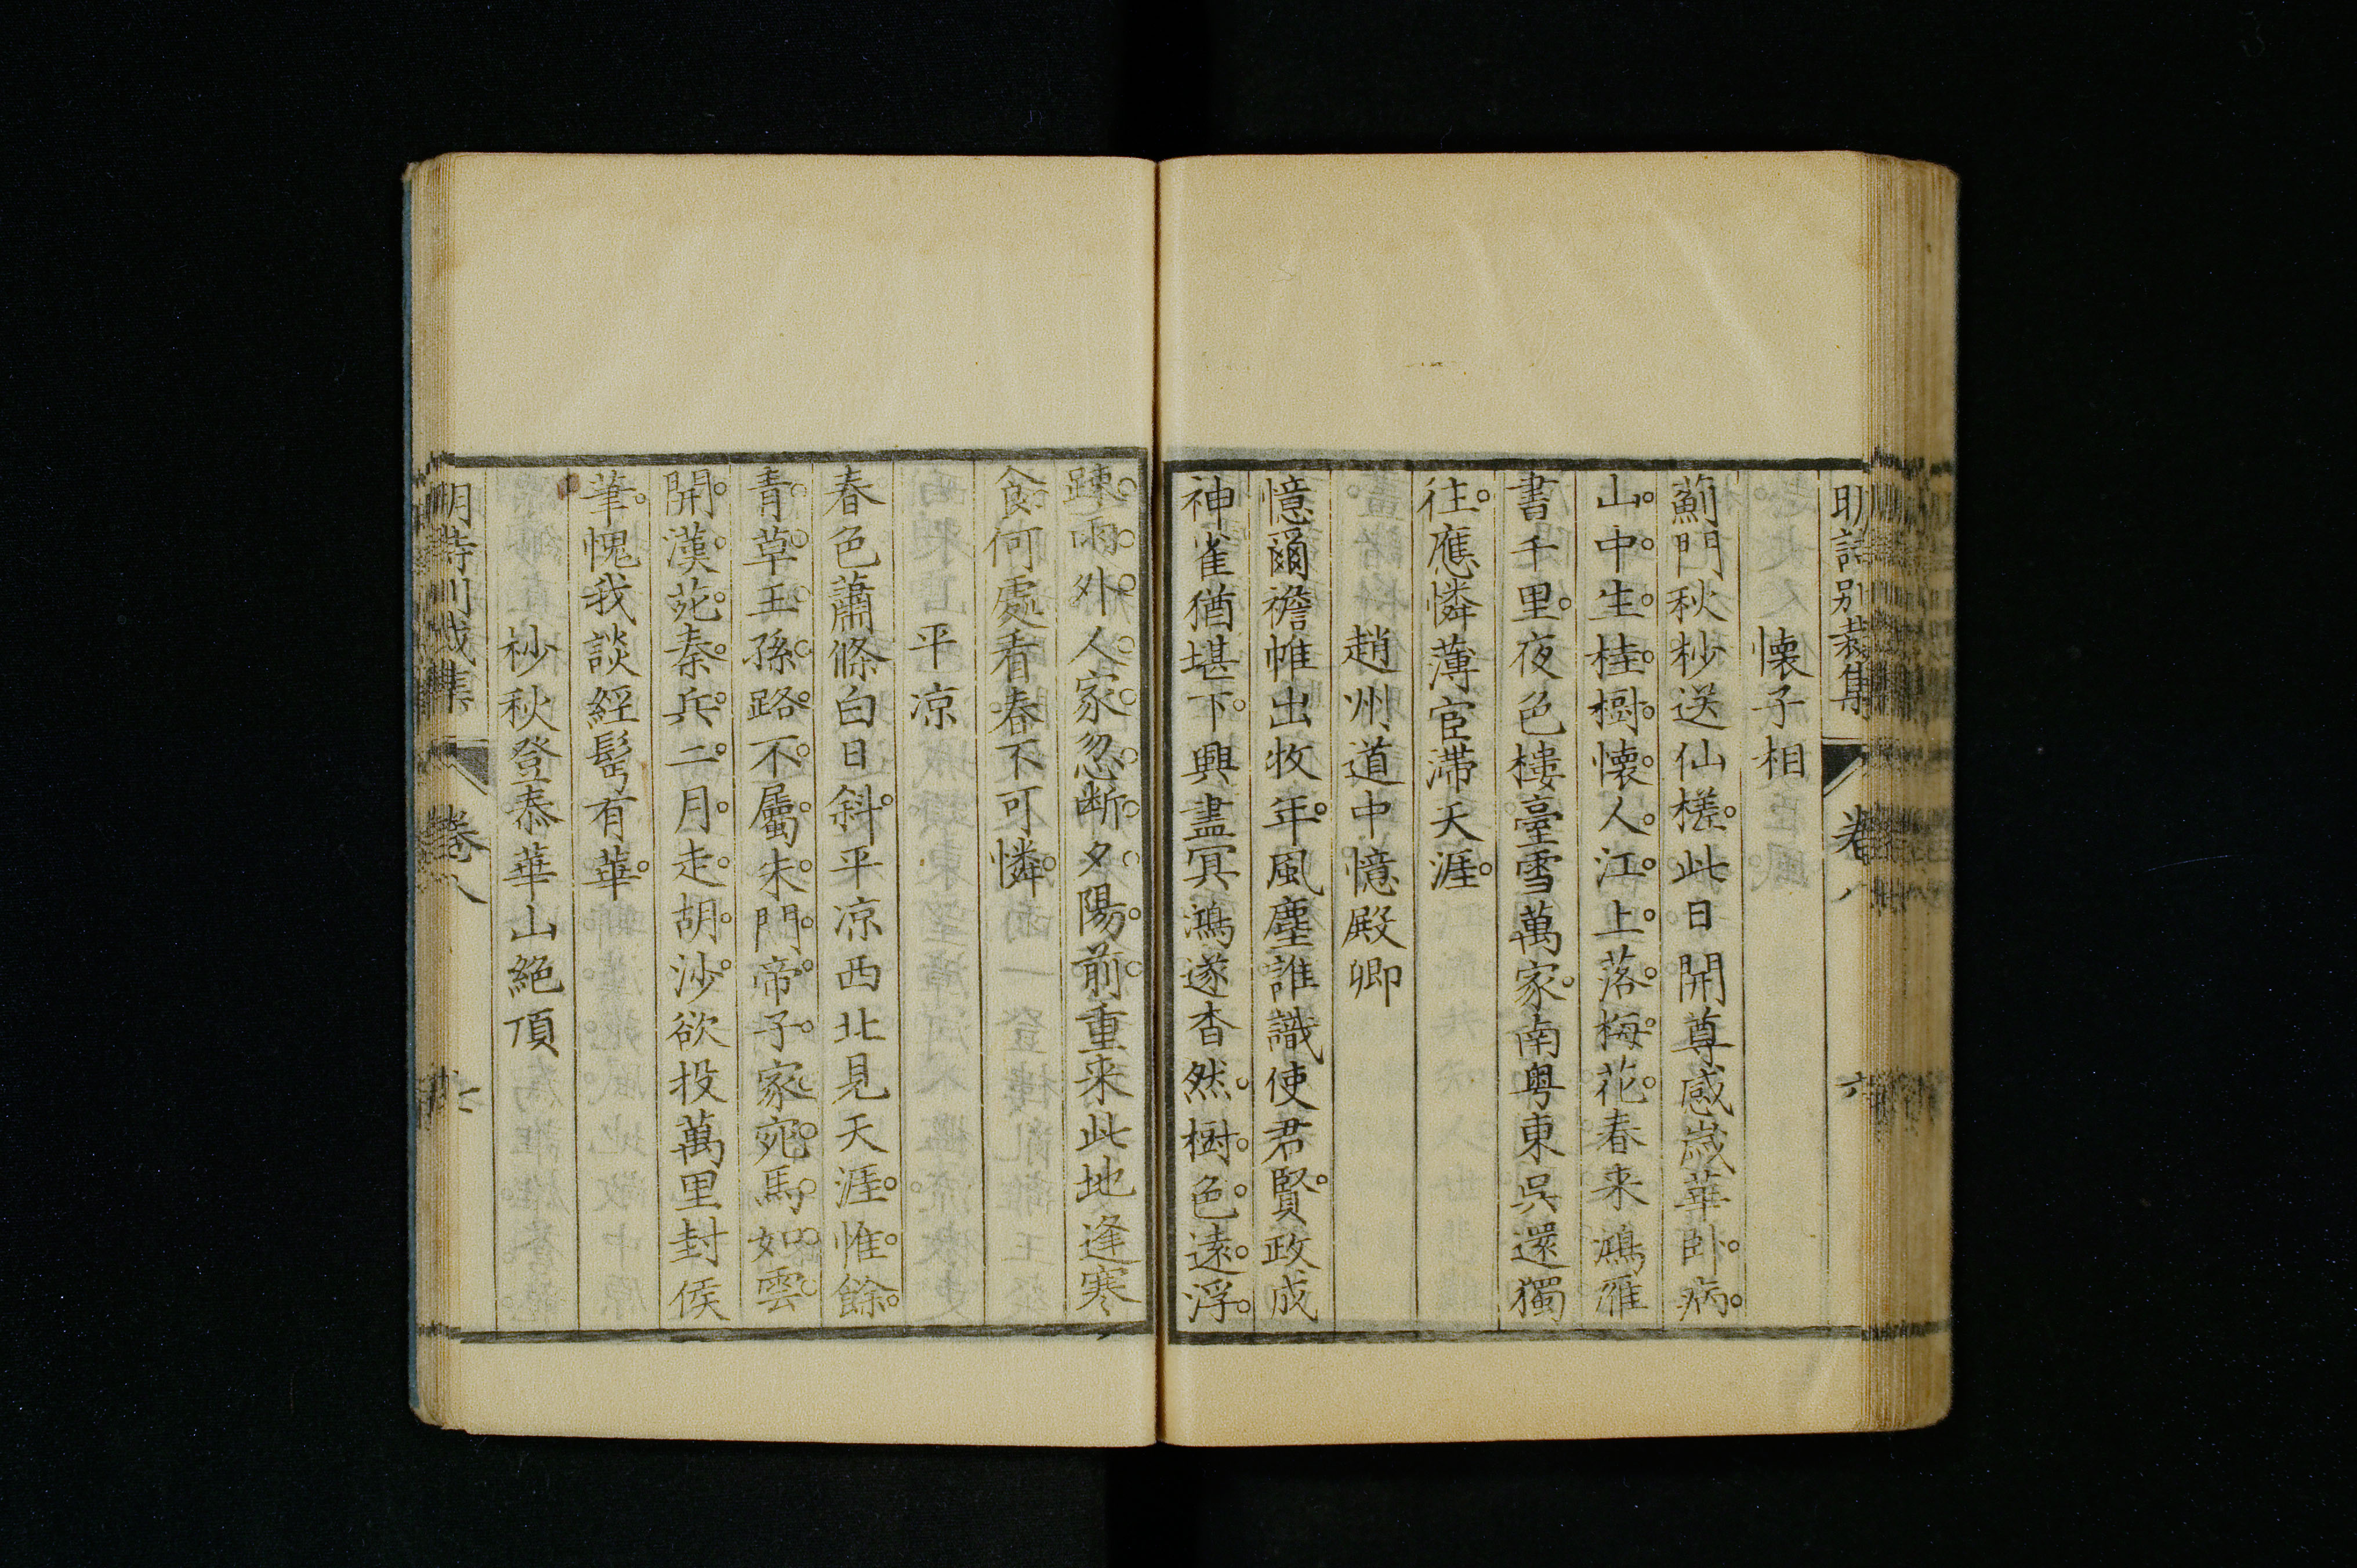 明詩別裁集 卷八 六
懷子相
薊門秋杪送仙槎。此日開尊感歲華。卧病。
山。中。生。桂。樹。懷。人。江。上。落。梅。花。春來鴻雁
書千里。夜色樓臺雪萬家。南粤東吳還獨
往。應憐薄宦滯天涯。
趙州道中憶殿卿
憶爾襜帷出牧年。風塵誰識使君賢。政成
神雀猶堪下。興盡冥鴻遂杳然。樹。色。遠。浮。
踈。雨。外。人。家。忽。斷。夕。陽。前。重来此地逢寒
食。何處看春不可憐。
平凉
春色蕭條白日斜。平凉西北見天涯。惟。餘。
青。草。王。孫。路。不。屬。朱。門。帝。子。家。宛。馬。如。雲。
開。漢。苑。秦。兵。二。月。走。胡。沙。欲投萬里封侯
筆。愧我談經髩有華。
杪秋登泰華山絕頂
明詩別裁集 卷八